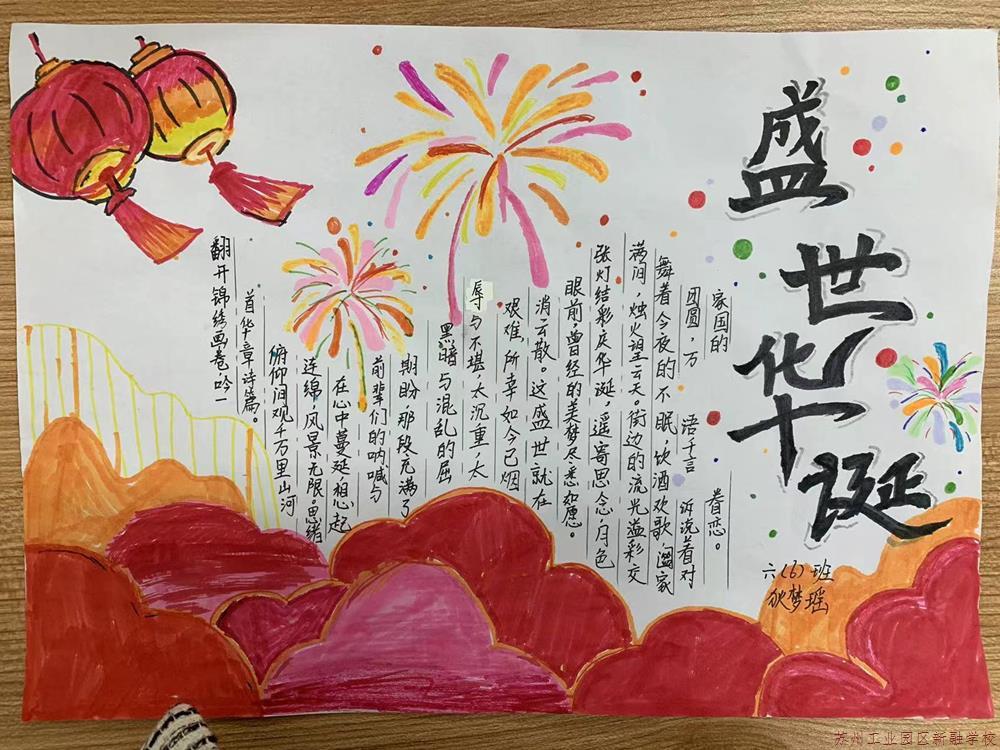 盛世华诞
六(6)班
狄梦瑶
翻开锦绣画卷,吟一
首华章诗篇。
俯仰间观千万里山河
连绵,风景无限。思绪
在心中蔓延,想起
前辈们的呐喊与
期盼,那段充满了
黑暗与混乱的屈
辱与不堪,太沉重,太
艰难,所幸如今已烟
消云散。这盛世就在
眼前,曾经的美梦尽悉如愿。
张灯结彩庆华诞,遥寄思念,月色
满间,烛火望云天。街边的流光溢彩交
舞着今夜的不眠,饮酒欢歌,阖家
团圆,万语千言诉说着对
家国的眷恋。
苏州工业园区新融学校